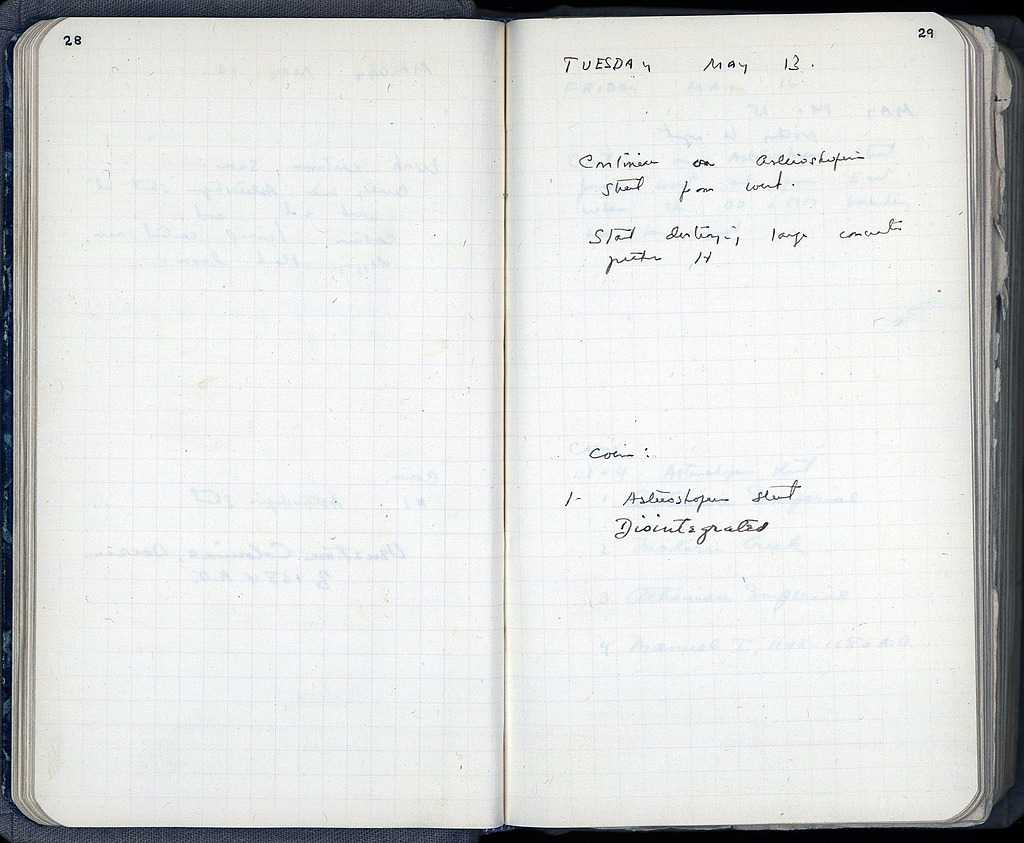 28
29
TUESDAY MAY 13.
Continue on Asterioskopeiou
Street from west.
Start destroying large concrete
H
Coin:
1- Asterioskopeiou Street
Disintegrated